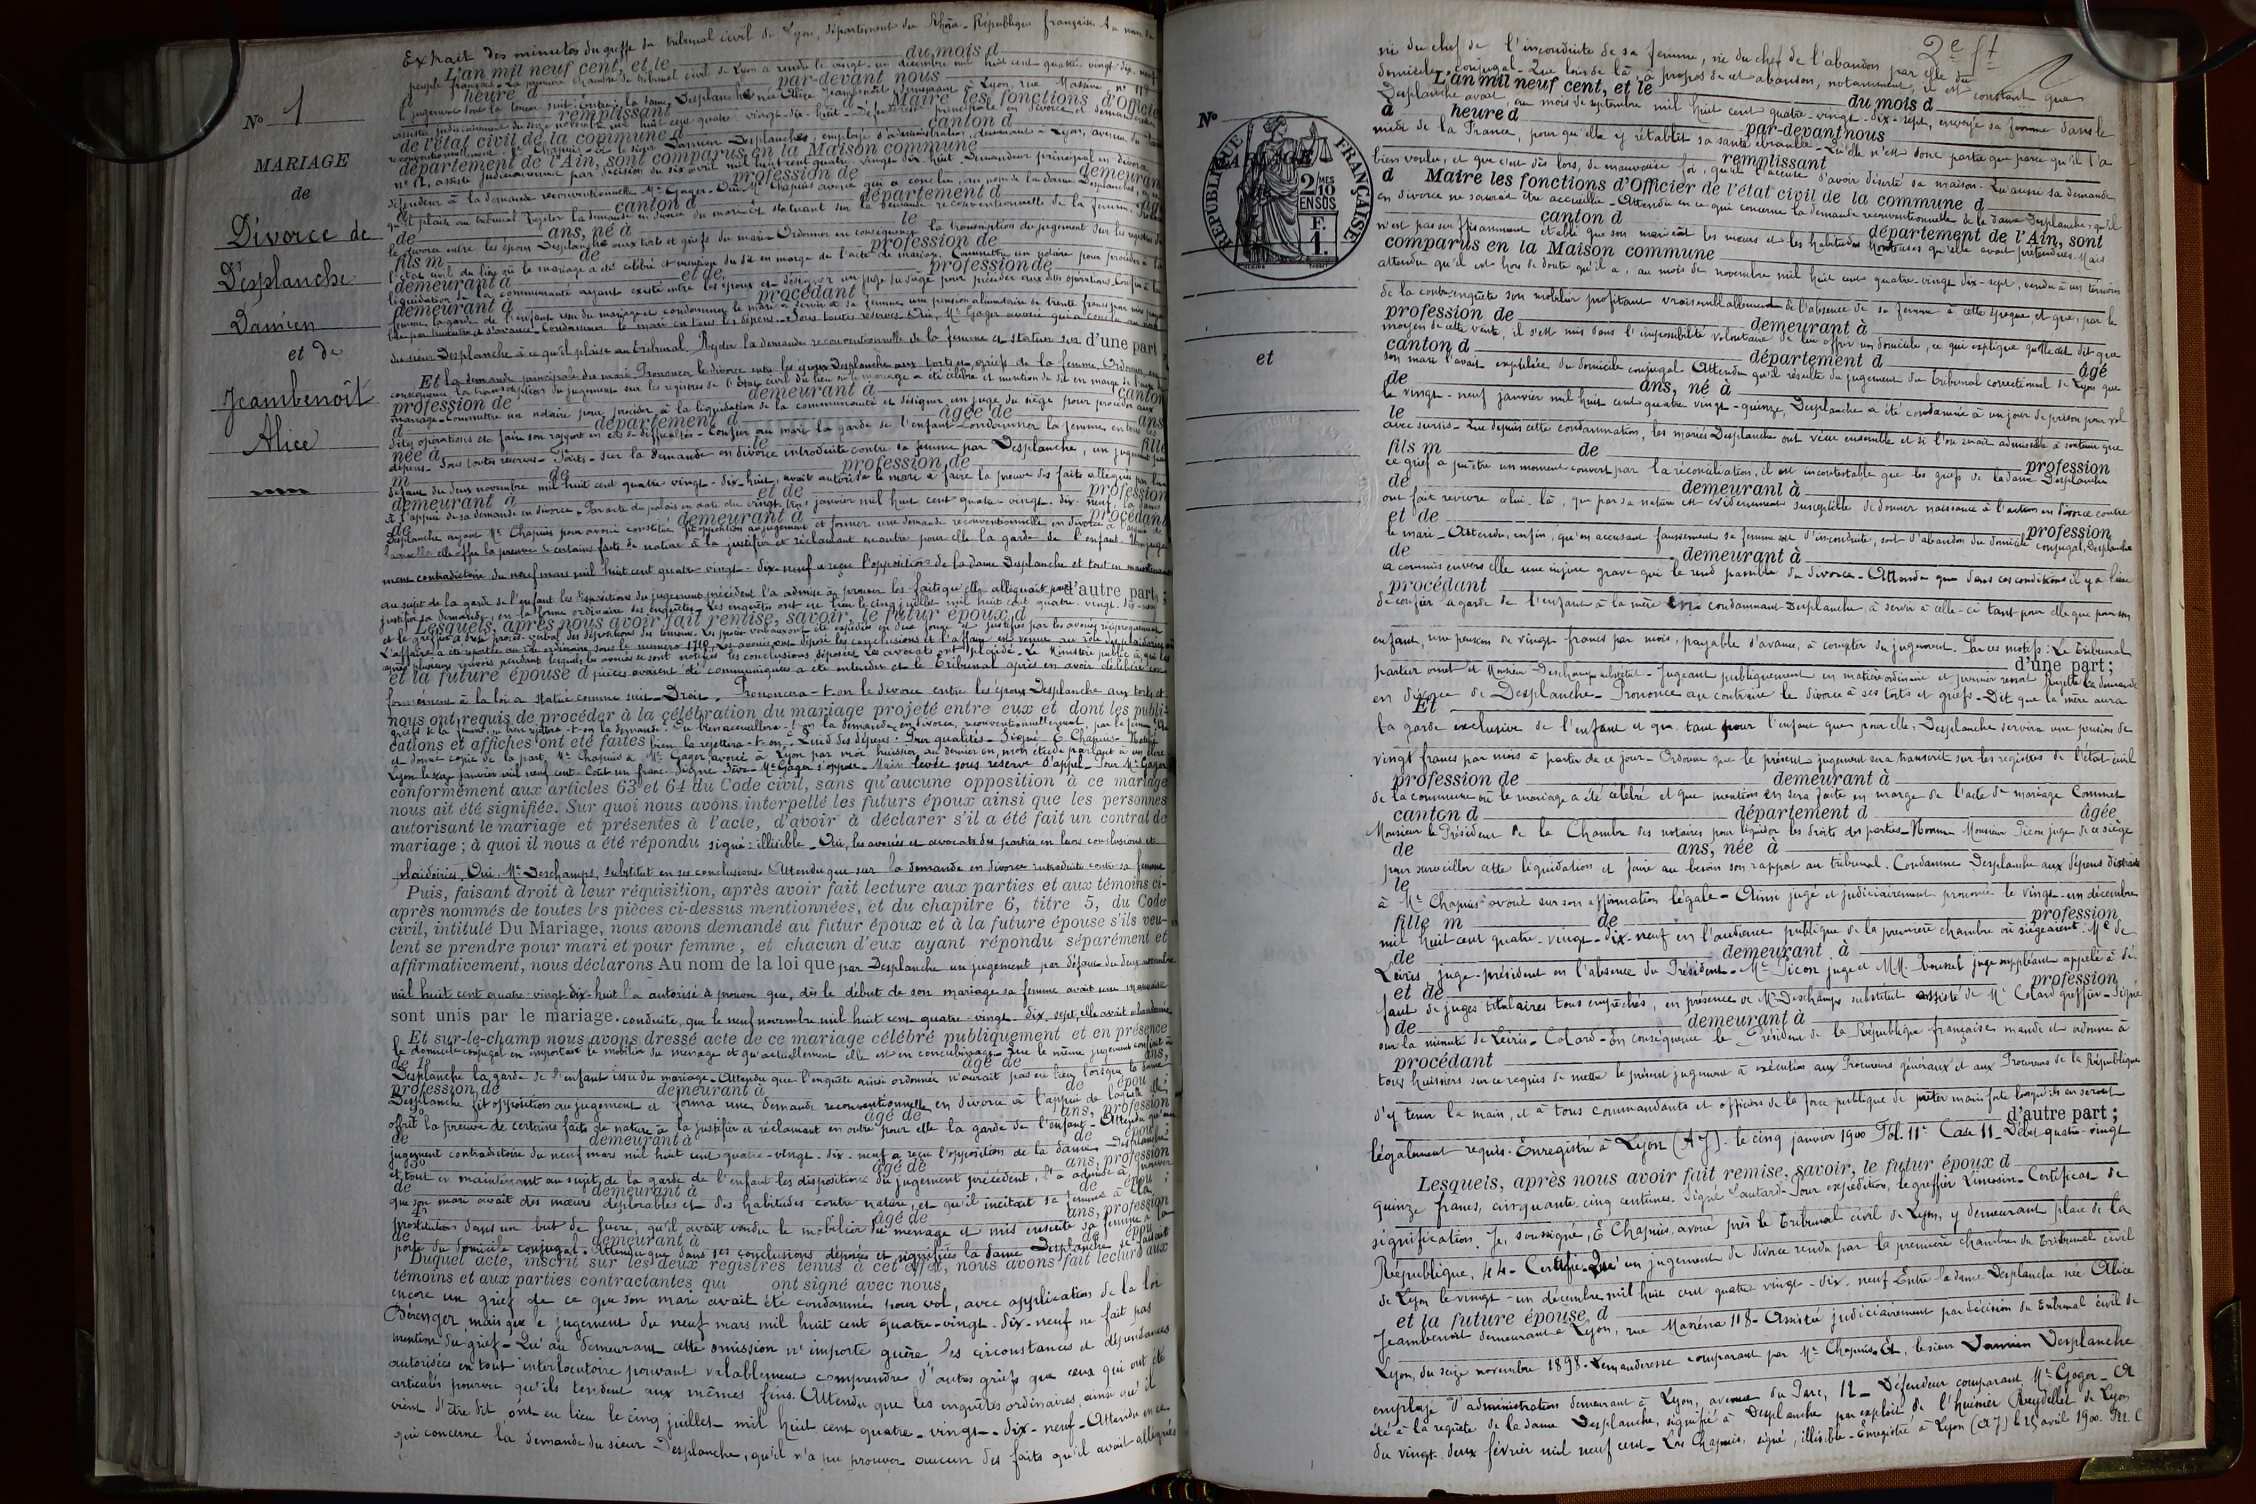 Extrait des minutes du greffe du tribunal civil de Lyon, département du Rhône - République française Au nom du
du mois d
L'an mil neuf cent, et le
peuple français - La première chambre du tribunal civil de Lyon a rendu le vingt-un décembre mil huit cent quatre-vingt-dix-neuf
par-devant nous
heure d
remplissant
d Maire les fonctions d'Officier
de l'état civil de la commune d
canton d
département de l'Ain, sont comparus en la Maison commune
N° 1
MARIAGE
de
Divorce de
Desplanche
Damien
et de
Jeambenoît
Alice
profession de
demeurant
défendeur à la demande reconventionnelle Me Gager - Ouï Me Chapuis avoué qui a conclu, au nom de la dame Desplanche,
canton d
département d
de
ans, né à
le
le divorce entre les époux Desplanche aux torts et griefs du mari - Ordonner en conséquence la transcription du jugement sur les registres de
fils m
de
profession de
l'état civil du lieu où le mariage a été célébré et mention du dit en marge de l'acte de mariage. Commettre un notaire pour procéder à la
demeurant à
et de
profession de
liquidation de la communauté ayant existé entre les époux et désigner un juge du siège pour procéder aux dites opérations - Confier à la
demeurant à
procédant
femme la garde de l'enfant issu du mariage et condamner le mari à servir à sa femme une pension alimentaire de trente francs par mois
du sieur Desplanche à ce qu'il plaise au tribunal. Rejeter la demande reconventionnelle de la femme et statuer sur d'une part ;
Et la demande principale du mari Prononcer le divorce entre les époux Desplanche aux torts et griefs de la femme. Ordonner en
conséquence la transcription du jugement sur les registres de l'état civil du lieu où le mariage a été célébré et mention du dit en marge de l'acte de
profession de
demeurant à
canton
mariage - Commettre un notaire pour procéder à la liquidation de la communauté et désigner un juge du siège pour procéder aux
d
département d
âgée de
ans
dites opérations et faire son rapport en cas de difficultés - Confier au mari la garde de l'enfant - Condamner la femme en tous les
née à
le
fille
dépens - Sous toutes réserves - Faits - Sur la demande en divorce introduite contre sa femme par Desplanche, un jugement par
m
de
profession de
défaut du deux novembre mil huit cent quatre vingt-dix-huit, avait autorisé le mari à faire la preuve des faits allégués par lui
demeurant à
et de
profession
à l'appui de sa demande en divorce - Par acte du palais en date du vingt trois janvier mil huit cent quatre-vingt-dix-neuf la dame
de
demeurant à
procédant
Desplanche ayant Me Chapuis pour avoué constitué fit opposition au jugement et former une demande reconventionnelle en divorce à l'appui de
laquelle elle offre la preuve de certains faits de nature à la justifier et réclamant en outre pour elle la garde de l'enfant - Un juge-
ment contradictoire du neuf mars mil huit cent quatre vingt-dix-neuf a reçu l'opposition de la dame Desplanche et tout en maintenant
au sujet de la garde de l'enfant les dispositions du jugement précédent l'a admise à prouver les faits qu'elle alléguait pour d'autre part ;
justifier sa demande, en la forme ordinaire des enquêtes - Les enquêtes ont eu lieu le cinq juillet mil huit cent quatre-vingt-dix-neuf
Lesquels, après nous avoir fait remise, savoir, le futur époux d
L'affaire a été reportée au rôle ordinaire sous le numéro
après plusieurs renvois pendant lesquels les avoués se sont notifiés les conclusions déposées, Les avocats ont plaidé - Le Ministère public à qui les
et la future épouse d
pièces avaient été communiquées a été entendu et le Tribunal après en avoir délibéré con-
formément à la loi a statué comme suit - Droit. Prononcera-t-on le divorce entre les époux Desplanche aux torts et
nous ont requis de procéder à la célébration du mariage projeté entre eux et dont les publi-
griefs de la femme, ou bien rejettera-t-on la demande. Ou bien accueillera-t-on la demande en divorce, reconventionnellement par la femme. Ou
cations et affiches ont été faites bien la rejettera-t-on. Quid des dépens. Pour qualités - Signé E. Chapuis - Notifié
et donné copie de la part, Me Chapuis à Me Gager, avoué à Lyon par moi huissier au dernier en mon étude parlant à un clerc
Lyon le janvier mil neuf cent - Coût un franc. Me Gager s'oppose - Main levée sous réserve d'appel - Pour Me Gager
conformément aux articles 63 et 64 du Code civil, sans qu'aucune opposition à ce mariage
nous ait été signifiée. Sur quoi nous avons interpellé les futurs époux ainsi que les personnes
autorisant le mariage et présentes à l'acte, d'avoir à déclarer s'il a été fait un contrat de
mariage ; à quoi il nous a été répondu signé : illisible - Ouï, les avoués et avocats des parties en leurs conclusions et
plaidoiries, Ouï Me Deschamps, substitut en ses conclusions - Attendu que sur la demande en divorce introduite contre sa femme
Puis, faisant droit à leur réquisition, après avoir fait lecture aux parties et aux témoins ci-
après nommés de toutes les pièces ci-dessus mentionnées, et du chapitre 6, titre 5, du Code
civil, intitulé Du Mariage, nous avons demandé au futur époux et à la future épouse s'ils veu-
lent se prendre pour mari et pour femme, et chacun d'eux ayant répondu séparément et
affirmativement, nous déclarons Au nom de la loi que par Desplanche un jugement par défaut du deux novembre
mil huit cent quatre-vingt-dix-huit l'a autorisé à prouver que, dès le début de son mariage sa femme avait une mauvaise
sont unis par le mariage. conduite, que le neuf novembre mil huit cent quatre-vingt-dix sept, elle avait abandonné
Et sur-le-champ nous avons dressé acte de ce mariage célébré publiquement et en présence
le domicile conjugal en emportant le mobilier du ménage et qu'actuellement elle est en concubinage - Que le même jugement confiait à
de 1°
âgé de
ans,
Desplanche la garde de l'enfant issu du mariage - Attendu que l'enquête ainsi ordonnée n'aurait pas eu lieu lorsque la dame
profession de
demeurant à
de épou
Desplanche fit opposition au jugement et forma une demande reconventionnelle en divorce à l'appui de laquelle elle
2°
âgé de
ans, profession
offrit la preuve de certains faits de nature à la justifier et réclamant en outre pour elle la garde de l'enfant - Attendu qu'un
de
demeurant à
de épou
jugement contradictoire du neuf mars mil huit cent quatre-vingt-dix-neuf a reçu l'opposition de la dame Desplanche
3°
âgé de
ans, profession
et tout en maintenant au sujet de la garde de l'enfant les dispositions du jugement précédent, l'a admise à prouver
de
demeurant à
de épou
que son mari avait des mœurs déplorables et des habitudes contre nature, et qu'il incitait sa femme à la
4°
âgé de
ans, profession
prostitution dans un but de lucre, qu'il avait vendu le mobilier du ménage et mis ensuite sa femme à la
de
demeurant à
de épou
porte du domicile conjugal. Attendu que dans ses conclusions déposées et signifiées la dame Desplanche se faisait
Duquel acte, inscrit sur les deux registres tenus à cet effet, nous avons fait lecture aux
témoins et aux parties contractantes qui ont signé avec nous
encore un grief de ce que son mari avait été condamné pour vol, avec application de la loi
Bérenger mais que le jugement du neuf mars mil huit cent quatre-vingt-dix-neuf ne fait pas
mention du grief - Qu'au demeurant cette omission n'importe guère les circonstances et dépendances
autorisées en tout interlocutoire pouvant valablement comprendre d'autres griefs que ceux qui ont été
articulés pourvu qu'ils tendent aux mêmes fins. Attendu que les enquêtes ordinaires, ainsi qu'il
vient d'être dit ont eu lieu le cinq juillet mil huit cent quatre-vingt-dix-neuf - Attendu en ce
qui concerne la demande du sieur Desplanche, qu'il n'a pu prouver aucun des faits qu'il avait allégués
2e ft
ni du chef de l'inconduite de sa femme, ni du chef de l'abandon par elle du
domicile conjugal - Que loin de là, à propos de cet abandon, notamment, il est constant que
L'an mil neuf cent, et le
du mois d
Desplanche avait, au mois de septembre mil huit cent quatre-vingt-dix-sept, envoyé sa femme dans le
à
heure d
par-devant nous
midi de la France, pour qu'elle y rétablit sa santé ébranlée - Qu'elle n'est donc partie que parce qu'il l'a
remplissant
bien voulu, et que c'est dès lors, de mauvaise foi, qu'il l'accuse d'avoir déserté sa maison - Qu'aussi sa demande
d Maire les fonctions d'Officier de l'état civil de la commune d
en divorce ne saurait être accueillie - Attendu en ce qui concerne la demande reconventionnelle de la dame Desplanche, qu'il
canton d
département de l'Ain, sont
n'est pas suffisamment établi que son mari eût les mœurs et les habitudes honteuses qu'elle avait prétendues - Mais
comparus en la Maison commune
attendu qu'il est hors de doute qu'il a, au mois de novembre mil huit cent quatre-vingt-dix-sept, vendu à un témoin
de la contre-enquête son mobilier profitant vraisemblablement de l'absence de sa femme à cette époque et que, par le
profession de
demeurant à
moyen de cette vente, il s'est mis dans l'impossibilité volontaire de lui offrir un domicile, ce qui explique qu'elle ait dit que
canton d
département d
âgé
son mari l'avait expulsée du domicile conjugal - Attendu qu'il résulte du jugement du tribunal correctionnel de Lyon que
de
ans, né à
le vingt-neuf janvier mil huit cent quatre vingt-quinze, Desplanche a été condamné à un jour de prison pour vol
le
avec sursis - Que depuis cette condamnation, les mariés Desplanche ont vécu ensemble et si l'on serait admissible à soutenir que
fils m
de
profession
ce grief a pu être un moment couvert par la réconciliation, il est incontestable que les griefs de la dame Desplanche
de
demeurant à
ont fait revivre celui-là, qui par sa nature est évidemment susceptible de donner naissance à l'action en divorce contre
et de
profession
le mari - Attendu, enfin, qu'en accusant faussement sa femme soit d'inconduite, soit d'abandon du domicile conjugal, Desplanche
de
demeurant à
a commis envers elle une injure grave qui le rend passible du divorce - Attendu que dans ces conditions il y a lieu
procédant
de confier la garde de l'enfant à la mère en condamnant Desplanche, à servir à celle-ci tant pour elle que pour son
enfant, une pension de vingt francs par mois, payable d'avance, à compter du jugement. Par ces motifs : Le Tribunal
d'une part ;
parties ouïes et Monsieur Deschamps substitut - Jugeant publiquement en matière ordinaire et premier ressort Rejette la demande
en divorce de Desplanche - Prononce au contraire le divorce à ses torts et griefs - Dit que la mère aura
Et
la garde exclusive de l'enfant et que tant pour l'enfant que pour elle, Desplanche servira une pension de
vingt francs par mois à partir de ce jour - Ordonne que le présent jugement sera transcrit sur les registres de l'état civil
profession de
demeurant à
de la commune où le mariage a été célébré et que mention en sera faite en marge de l'acte de mariage Commet
canton d
département d
âgée
Monsieur le Président de la Chambre des notaires pour liquider les droits des parties - Nomme Monsieur Picon juge de ce siège
de
ans, née à
pour surveiller cette liquidation et faire au besoin son rapport au tribunal. Condamne Desplanche aux dépens distraits
le
à Me Chapuis avoué sur son affirmation légale - Ainsi jugé et judiciairement prononcé le vingt-un décembre
fille m
de
profession
mil huit cent quatre-vingt-dix-neuf en l'audience publique de la première chambre où siégeaient. Mr de
de
demeurant à
Leiris, juge-président en l'absence du Président - Mr Picon juge et M.M. juge suppléant appelé à dé-
et de
profession
faut de juges titulaires tous empêchés, en présence de Mr Deschamps substitut assisté de Mr Colard greffier - Signé
de
demeurant à
sur la minute de Leiris - Colard - En conséquence le Président de la République française mande et ordonne à
procédant
tous huissiers sur ce requis de mettre le présent jugement à exécution aux Procureurs généraux et aux Procureurs de la République
d'y tenir la main, et à tous commandants et officiers de la force publique de prêter main forte lorsqu'ils en seront
d'autre part ;
légalement requis. Enregistré à Lyon (A J) le cinq janvier 1900 Fol. 11e Case 11 - Débit quatre-vingt
Lesquels, après nous avoir fait remise, savoir, le futur époux d
quinze francs, cinquante cinq centimes. Signé Lautard - Pour expédition, le greffier Limosin - Certificat de
signification. Je, soussigné, E Chapuis, avoué près le Tribunal civil de Lyon, y demeurant place de la
République, 44 - Certifie - Qu'un jugement de divorce rendu par la première chambre du Tribunal civil
de Lyon le vingt-un décembre mil huit cent quatre vingt-dix-neuf Entre la dame Desplanche née Alice
et la future épouse d
Jeambenoît demeurant à Lyon, rue Masséna 118 - Assistée judiciairement par décision du Tribunal civil de
Lyon, du seize novembre 1898. Demanderesse comparant par Me Chapuis. Et, le sieur Damien Desplanche
employé d'administration demeurant à Lyon, avenue du Parc, 12 - Défendeur comparant Me Gager - A
été à la requête de la dame Desplanche, signifié à Desplanche par exploit de l'huissier Reydellet de Lyon
du vingt-deux février mil neuf cent - Chapuis, signé, illisible - Enregistré à Lyon (A J) le avril 1900.
N°
MARIAGE
et
REPUBLIQUE FRANÇAISE
2/10 MES
EN SUS
F.
1.